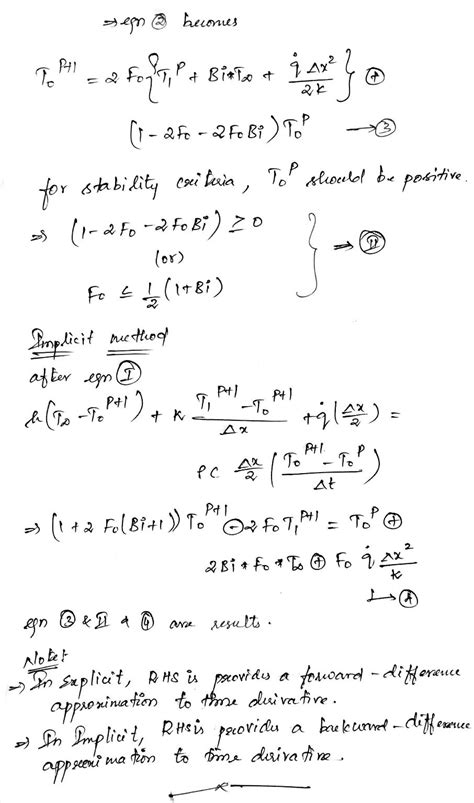 ⇒ eqn ② becomes
T₀^{P+1} = 2 F₀ { T₁^P + Bi*T∞ + q̇ Δx²/2k } ⊕
(1 - 2F₀ - 2F₀Bi) T₀^P → ③
for stability criteria, T₀^P should be positive.
⇒ (1 - 2F₀ - 2F₀Bi) ≥ 0
(or)
F₀ ≤ 1/2 (1+Bi) } ⇒ Ⅱ
Implicit method
after eqn Ⅰ
h(T∞ - T₀^{P+1}) + k (T₁^{P+1} - T₀^{P+1})/Δx + q̇ (Δx/2) =
ρC Δx/2 ( (T₀^{P+1} - T₀^P)/Δt )
⇒ (1+2 F₀(Bi+1)) T₀^{P+1} ⊖ 2F₀T₁^{P+1} = T₀^P ⊕
2Bi * F₀ * T∞ ⊕ F₀ q̇ Δx²/k
↳ ④
eqn ③ & Ⅱ & ④ are results.
Note:
⇒ In Explicit, RHS is provides a forward-difference
approximation to time derivative.
⇒ In Implicit, RHS is provides a backward-difference
approximation to time derivative.